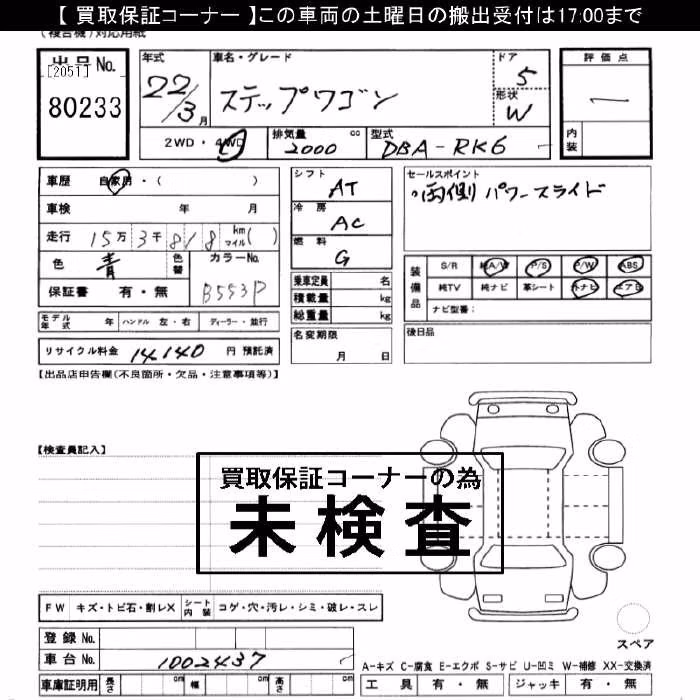 【 買取保証コーナー 】この車両の土曜日の搬出受付は17:00まで
(複合機)対応用紙
出品No.
[2051]
80233
年式 22/3月
車名・グレード ステップワゴン
ドア 5
形状 W
評価点 一
内装
2WD・4WD
排気量 2000 cc
型式 DBA-RK6
車歴 自家用・( )
車検 年 月
走行 15万3千818 km マイル( )
色 青 色替 カラーNo. B553P
保証書 有・無
シフト AT
冷房 AC
燃料 G
乗車定員 名
積載量 kg
総重量 kg
名変期限 月 日
セールスポイント
両側パワースライド
装備品
S/R 純A/W P/S P/W ABS
純TV 純ナビ 革シート 外ナビ エアB
ナビ型番:
後日品
モデル年式 年 ハンドル 左・右 ディーラー・並行
リサイクル料金 14,140 円 預託済
【出品店申告欄(不良箇所・欠品・注意事項等)】
【検査員記入】
買取保証コーナーの為
未検査
FW キズ・トビ石・割レX シート内装 コゲ・穴・汚レ・シミ・破レ・スレ
登録No.
車台No. 1002437
車庫証明用 長さ cm 幅 cm 高さ cm
スペア
A-キズ C-腐食 E-エクボ S-サビ U-凹ミ W-補修 XX-交換済
工具 有・無 ジャッキ 有・無